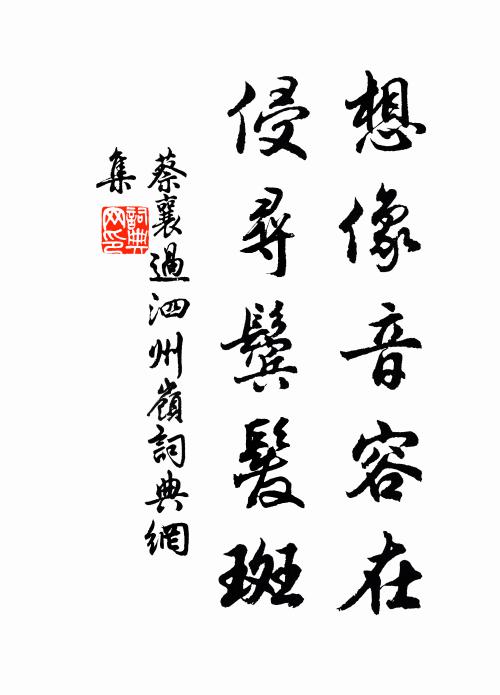 想像音容在
侵尋鬢髮斑
蔡襄過泗州嶺詞典網
集
詞典
网印